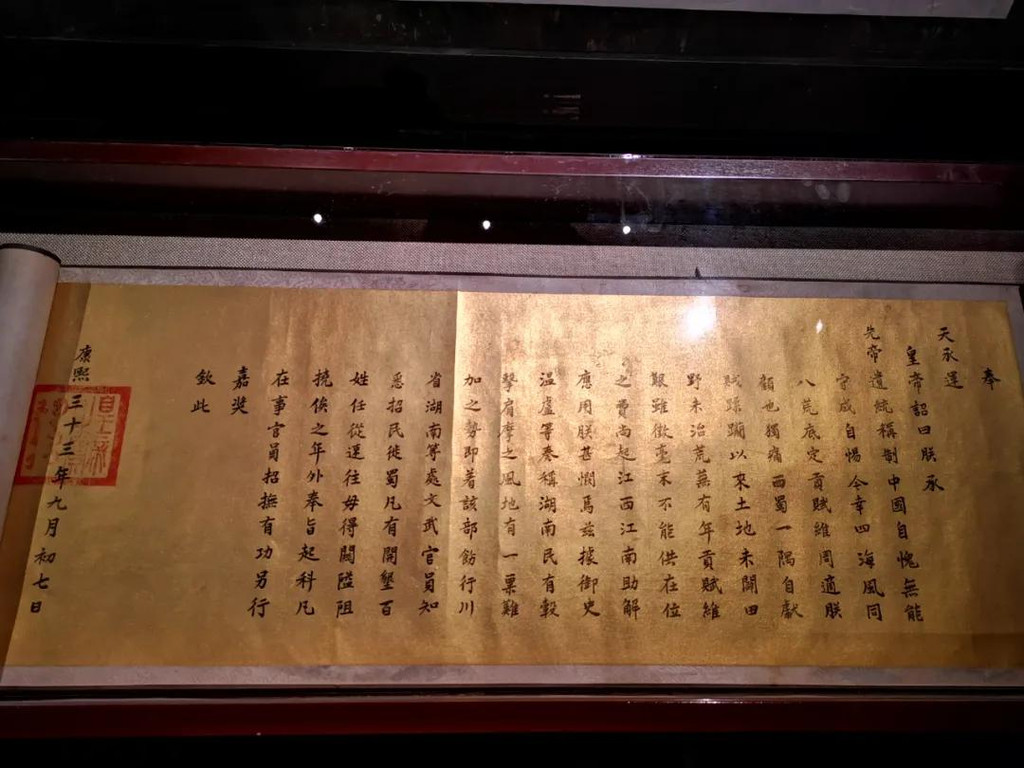 奉
天承運
皇帝詔曰朕承
先帝遺統稱制中國自愧無能
守成自惕今幸四海風同
八荒底定貢賦維周適朕
顧也獨痛西蜀一隅自獻
賊蹂躪以來土地未開田
野未治荒蕪有年貢賦維
艱雖徵毫末不能供在位
之費尚起江西江南助解
應用朕甚憫焉茲據御史
溫盧等奏稱湖南民有轂
擊肩摩之風地有一粟難
加之勢即着該部飭行川
省湖南等處文武官員知
悉招民徙蜀凡有開墾百
姓任從運往毋得關隘阻
撓俟之年外奉旨起科凡
在事官員招撫有功另行
嘉奖
欽此
康熙三十三年九月初七日